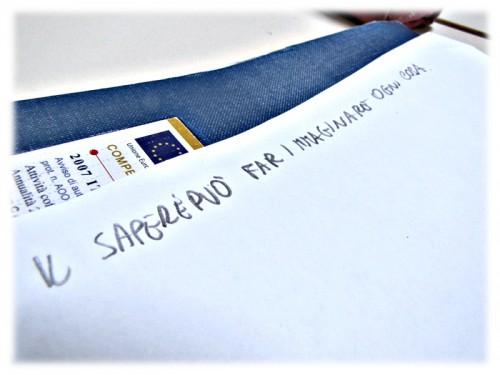 IL SAPERE PUÒ FAR IMMAGINARE OGNI COSA
Unione Euro
COMPE
2007 IT
Avviso di aut
prot. n. AOO
Attività co
Annualità